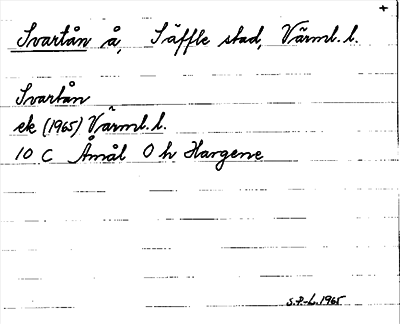 +
Svartån å, Säffle stad, Värml. l.
Svartån
ek (1965) Värml. l.
10 C Åmål O h Hargene
S.P.-L. 1965